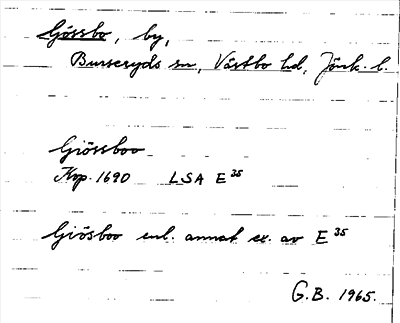 Gössbo, by,
Burseryds sn, Västbo hd, Jönk. l.
Giössboo
Kop. 1690 LSA E 35
Giösboo enl. annat ex. av E 35
G.B. 1965.